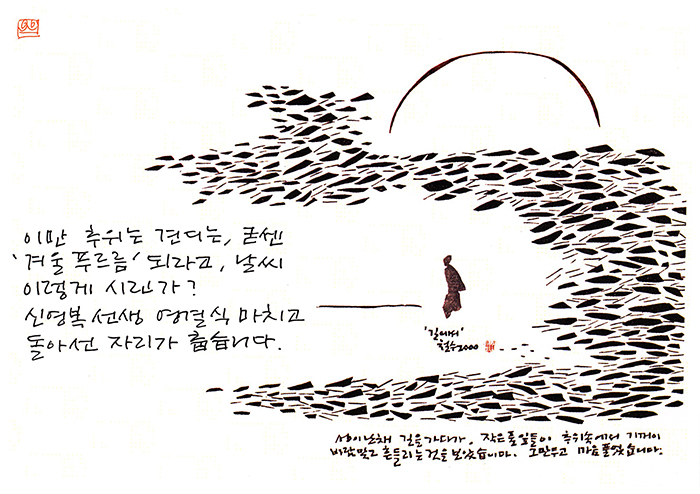 이만 추위는 견디는, 굳센
'겨울 푸르름' 되라고, 날씨
이렇게 시린가?
신영복 선생 영결식 마치고
돌아선 자리가 춥습니다.
'길에서'
철수 2000
성이 난채 길을 가다가, 작은 풀잎들이 추위속에서 기꺼이
바람맞고 흔들리는 것을 보았습니다. 그만두고 마음 풀었습니다.